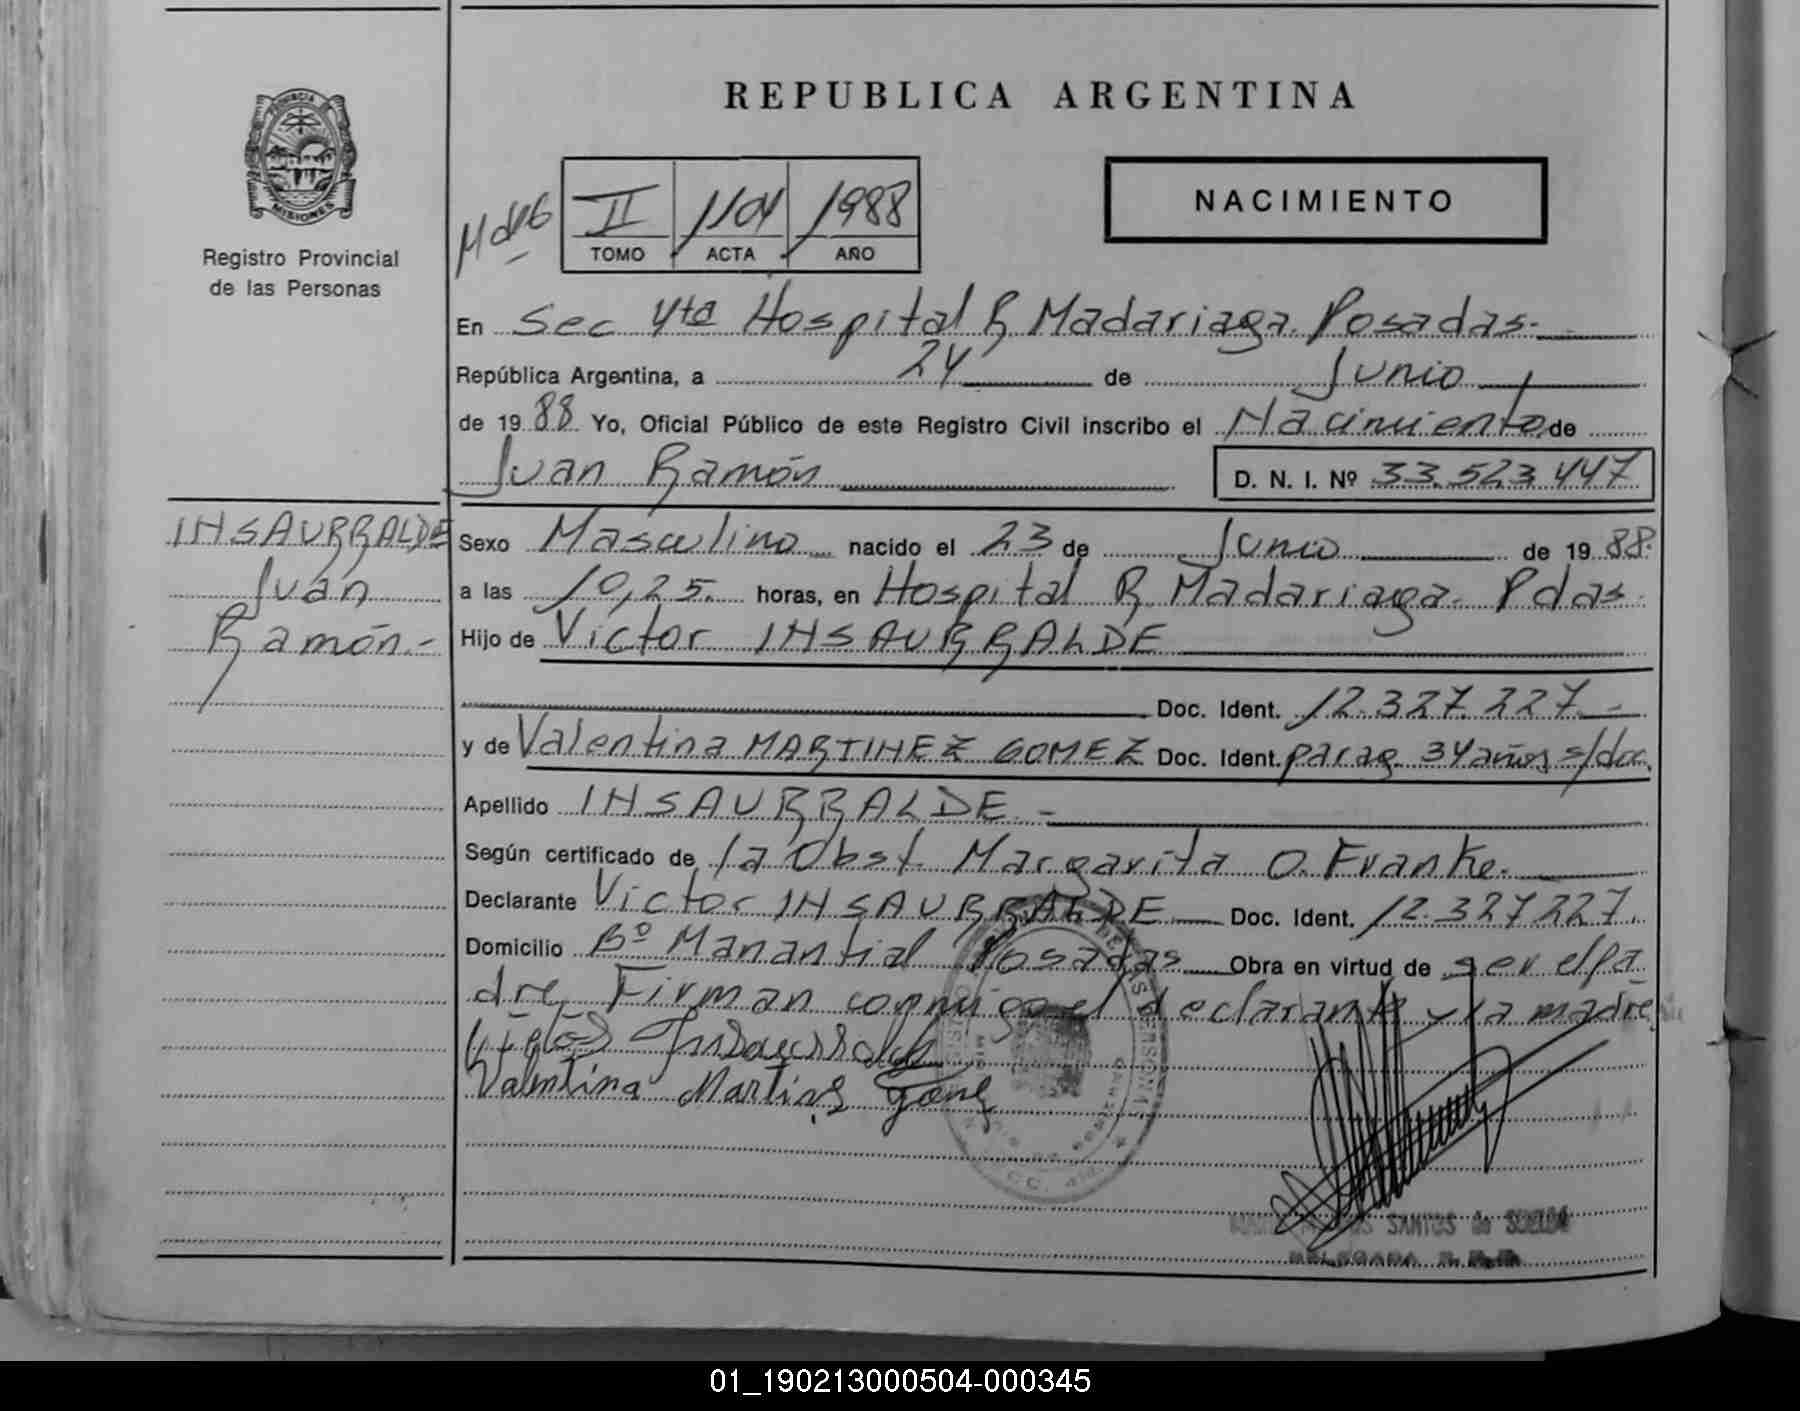 REPUBLICA ARGENTINA
PROVINCIA
MISIONES
Registro Provincial
de las Personas
NACIMIENTO
II 1988
TOMO ACTA AÑO
En Sec 4ta Hospital R Madariaga Posadas.
República Argentina, a 24 de Junio
de 1988 Yo, Oficial Público de este Registro Civil inscribo el Nacimiento de
Juan Ramón D. N. I. Nº 33.523.447
INSAURRALDE
Juan
Ramón.-
Sexo Masculino nacido el 23 de Junio de 1988.
a las 10,25. horas, en Hospital R Madariaga. Pdas.
Hijo de Víctor INSAURRALDE
Doc. Ident. 12.327.227.-
y de Valentina MARTINEZ GOMEZ Doc. Ident. parag. 34 años s/doc.
Apellido INSAURRALDE.-
Según certificado de la Obst. Margarita O. Franke.
Declarante Víctor INSAURRALDE Doc. Ident. 12.327.227.
Domicilio Bº Manantial Posadas Obra en virtud de ser el pa
dre, Firman conmigo el declarante y la madre
Insaurralde
Valentina Martines Gomez
SANTOS de
DELEGADA
01_190213000504-000345